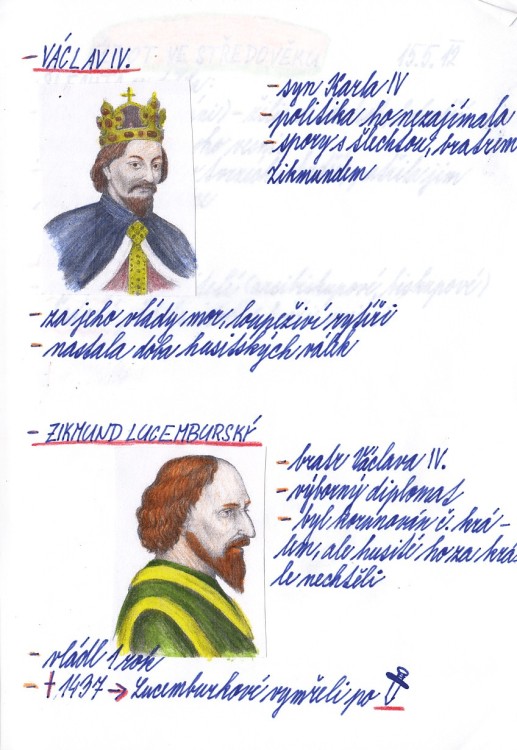 - VÁCLAV IV.
- syn Karla IV
- politika ho nezajímala
- spory s šlechtou, bratrem
Zikmundem
- za jeho vlády mor, loupeživí rytíři
- nastala doba husitských válek
- ZIKMUND LUCEMBURSKÝ
- bratr Václava IV.
- výborný diplomat
- byl korunován č. krá-
lem, ale husité ho za krá-
le nechtěli
- vládl 1 rok
- † 1437 → Lucemburkové vymřeli po